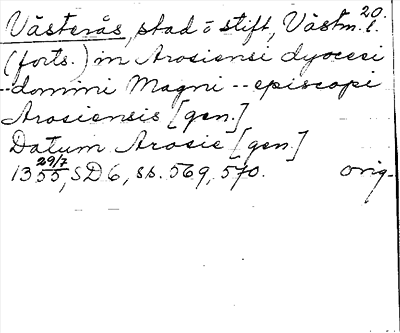 Västerås, stad o stift, Västm. l. 20.
(forts.) in Arosiensi dyocesi
--domini Magni -- episcopi
Arosiensis [gen.]
Datum Arosie [gen.]
1355 29/7, SD6, ss. 569, 570. orig.